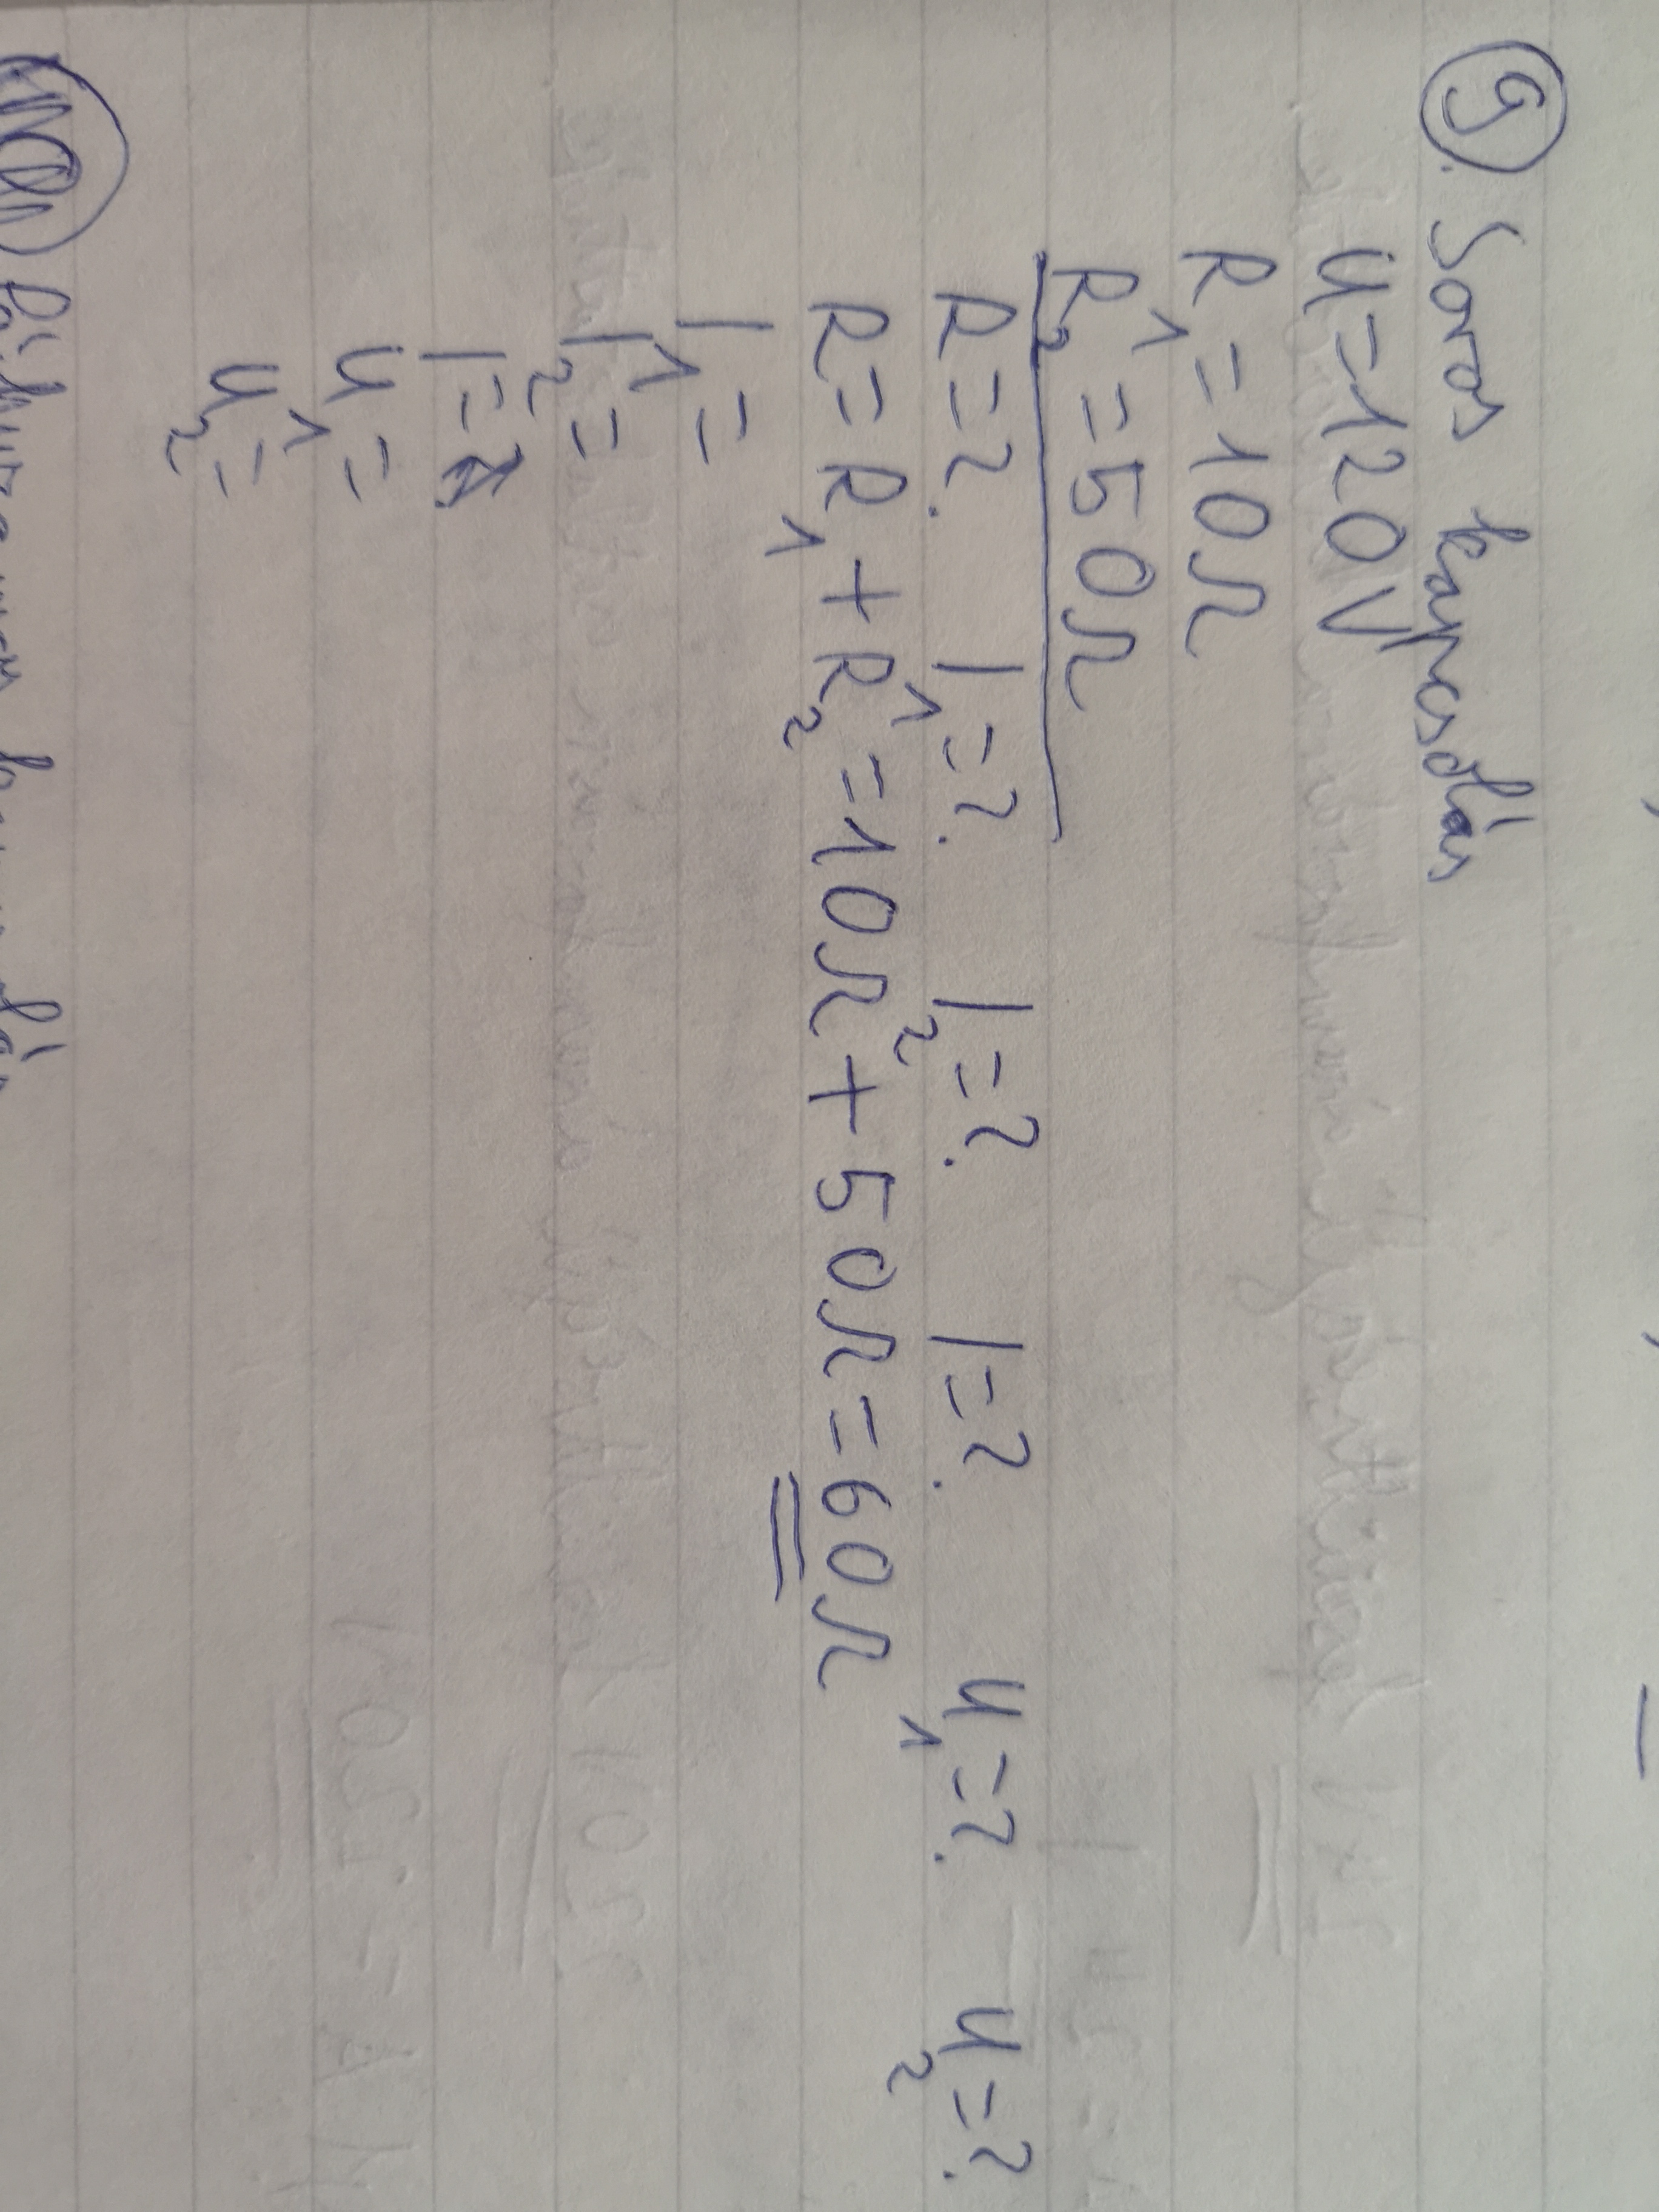 9. Soros kapcsolás
U=120V
R₁=10Ω
R₂=50Ω
R=? I₁=? I₂=? I=? U₁=? U₂=?
R=R₁+R₂=10Ω+50Ω=60Ω
I₁=
I₂=
I=
U₁=
U₂=